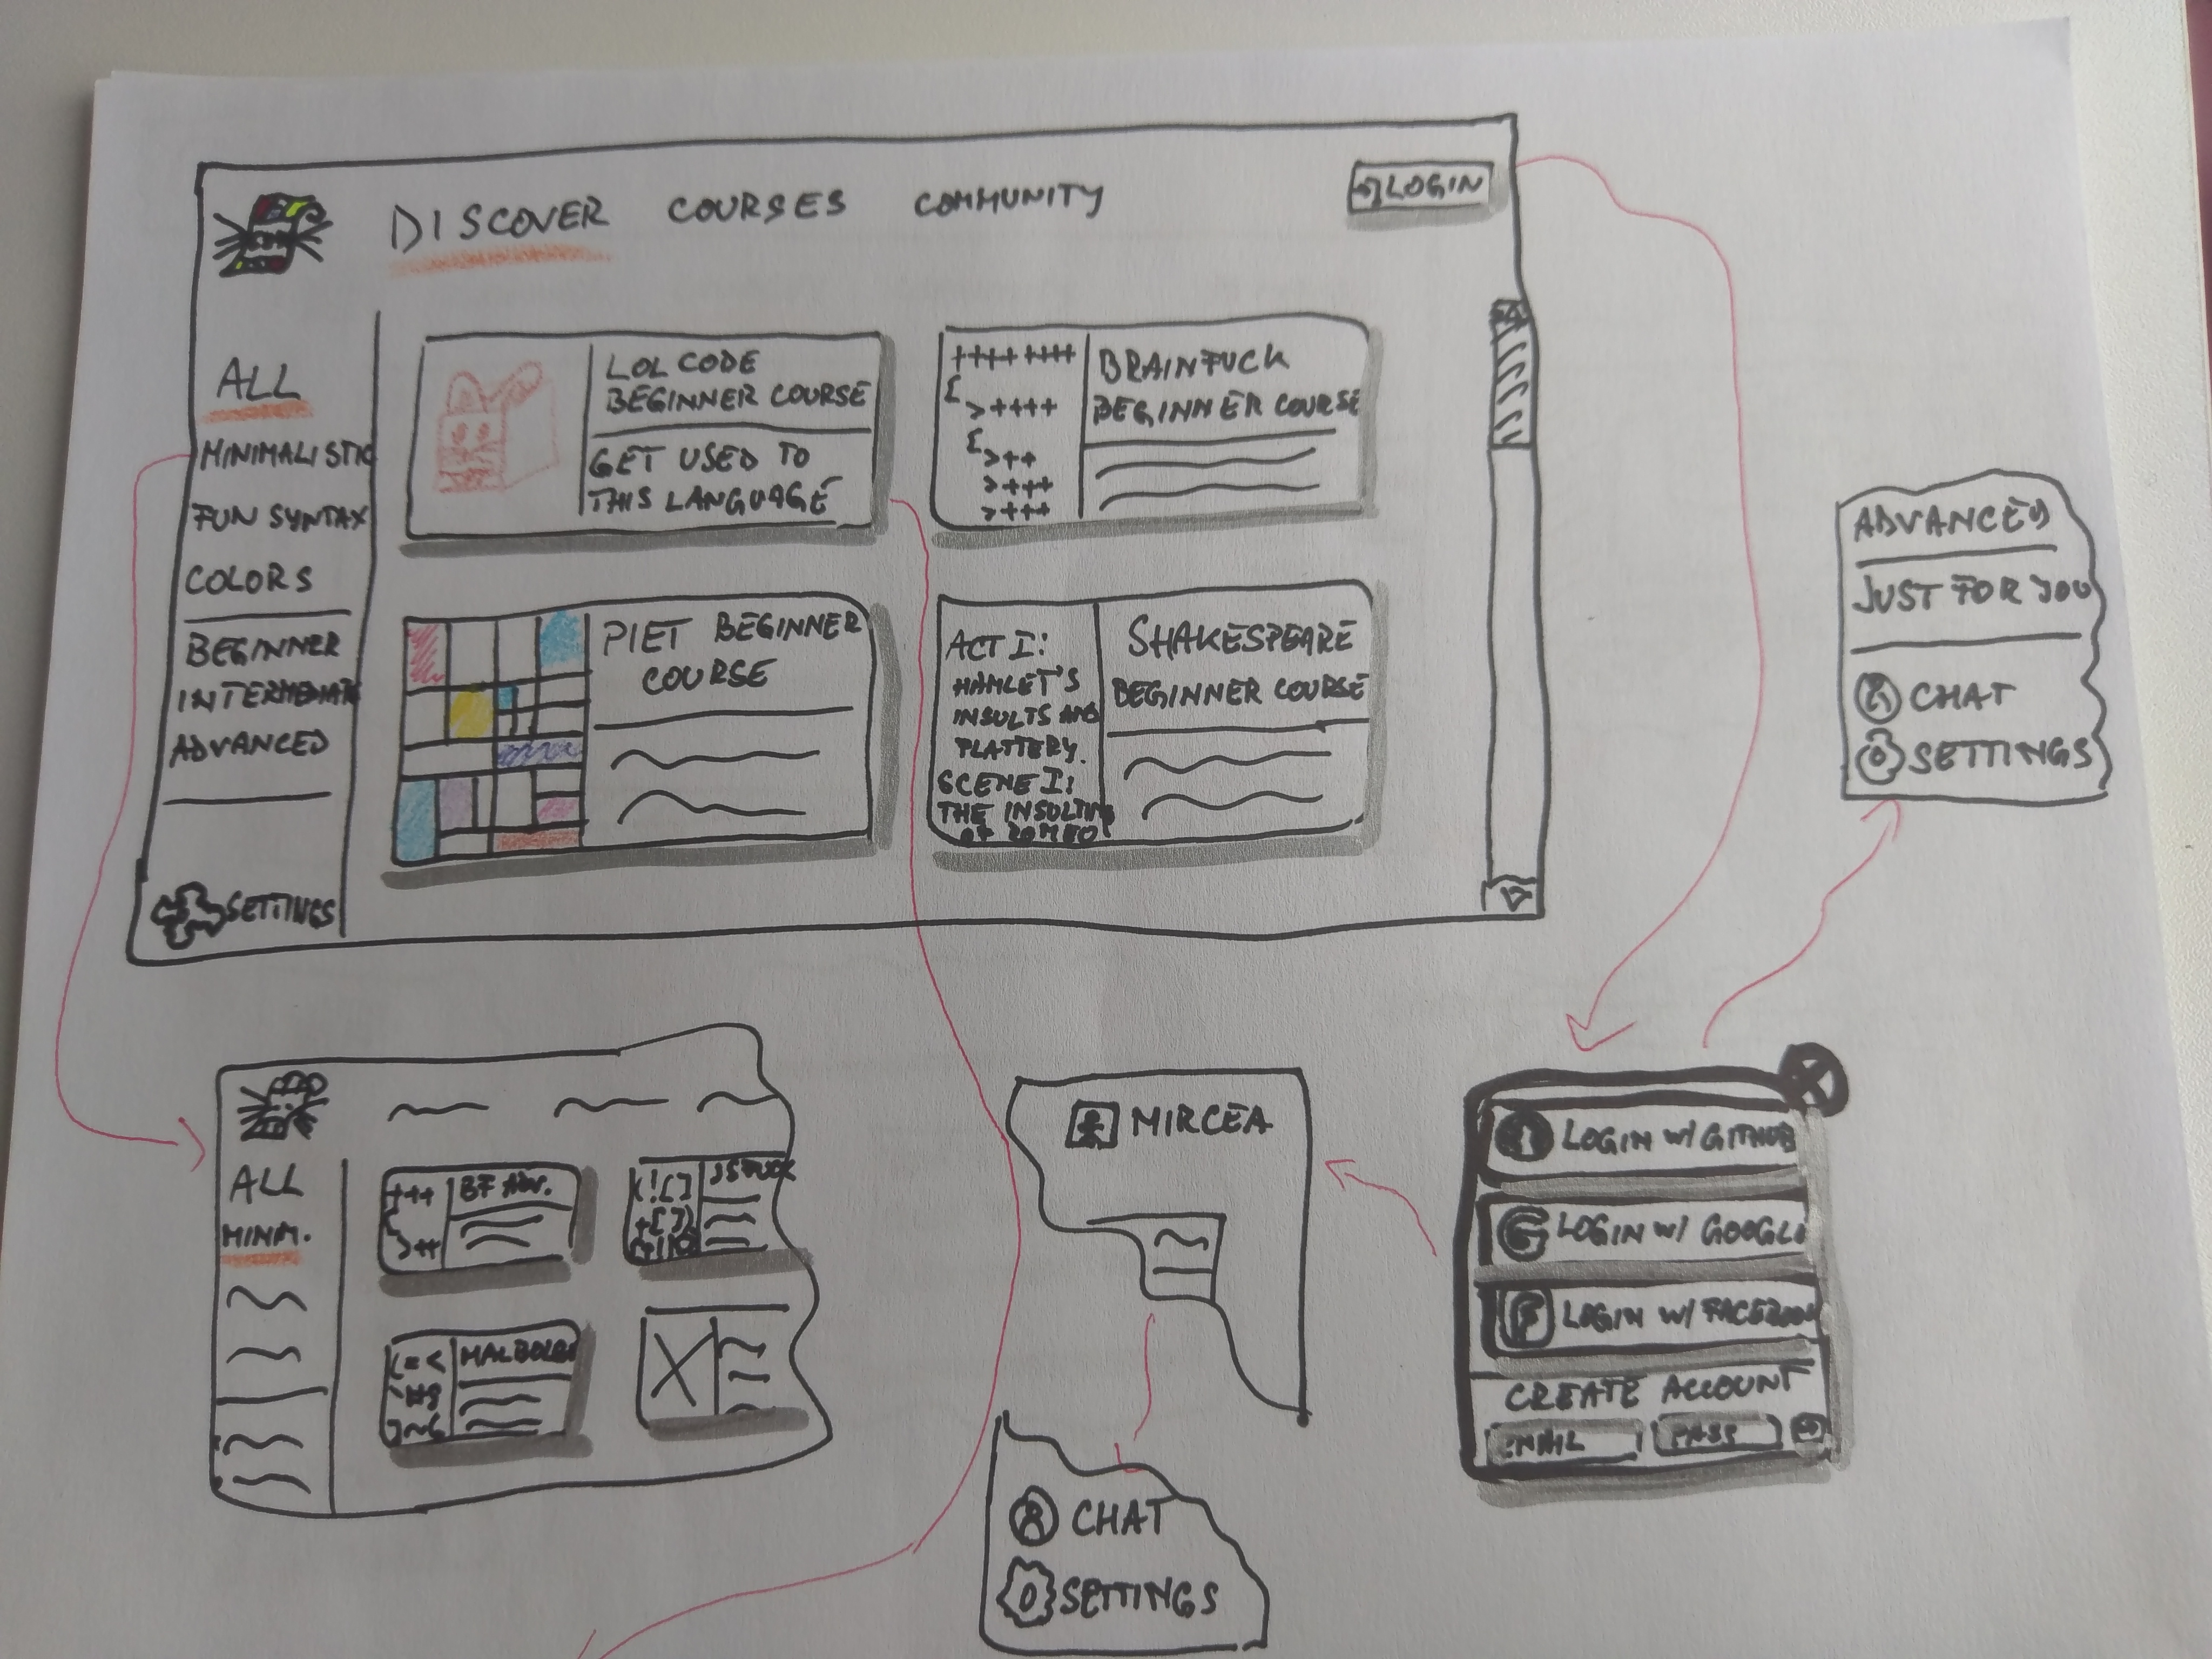 DISCOVER COURSES COMMUNITY
LOGIN
ALL
MINIMALISTIC
FUN SYNTAX
COLORS
BEGINNER
INTERMEDIATE
ADVANCED
SETTINGS
LOLCODE
BEGINNER COURSE
GET USED TO
THIS LANGUAGE
++++ ++++
[
>++++
[
>++
>+++
>+++
BRAINFUCK
BEGINNER COURSE
PIET BEGINNER
COURSE
ACT I:
HAMLET'S
INSULTS AND
FLATTERY.
SCENE I:
THE INSULTING
OF ROMEO
SHAKESPEARE
BEGINNER COURSE
ADVANCED
JUST FOR YOU
CHAT
SETTINGS
ALL
MINM.
+++
>++
BF ADV.
(![]
+[])
JSFUCK
(=<
MALBOLGE
MIRCEA
CHAT
SETTINGS
LOGIN W/ GITHUB
G LOGIN W/ GOOGLE
F LOGIN W/ FACEBOOK
CREATE ACCOUNT
EMAIL
PASS